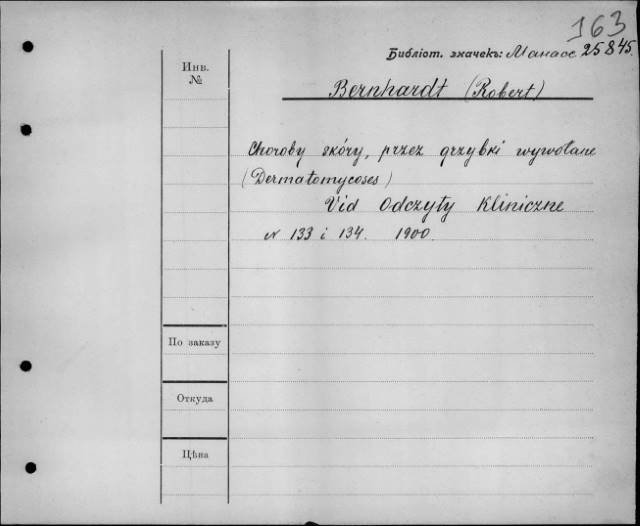 163
Библіот. значекъ: Манасс 25845.
Инв.
№
Bernhardt (Robert)
Choroby skóry, przez grzybki wywołane
(Dermatomycoses)
Vid Odczyty kliniczne
N 133 i 134. 1900.
По заказу
Откуда
Цѣна